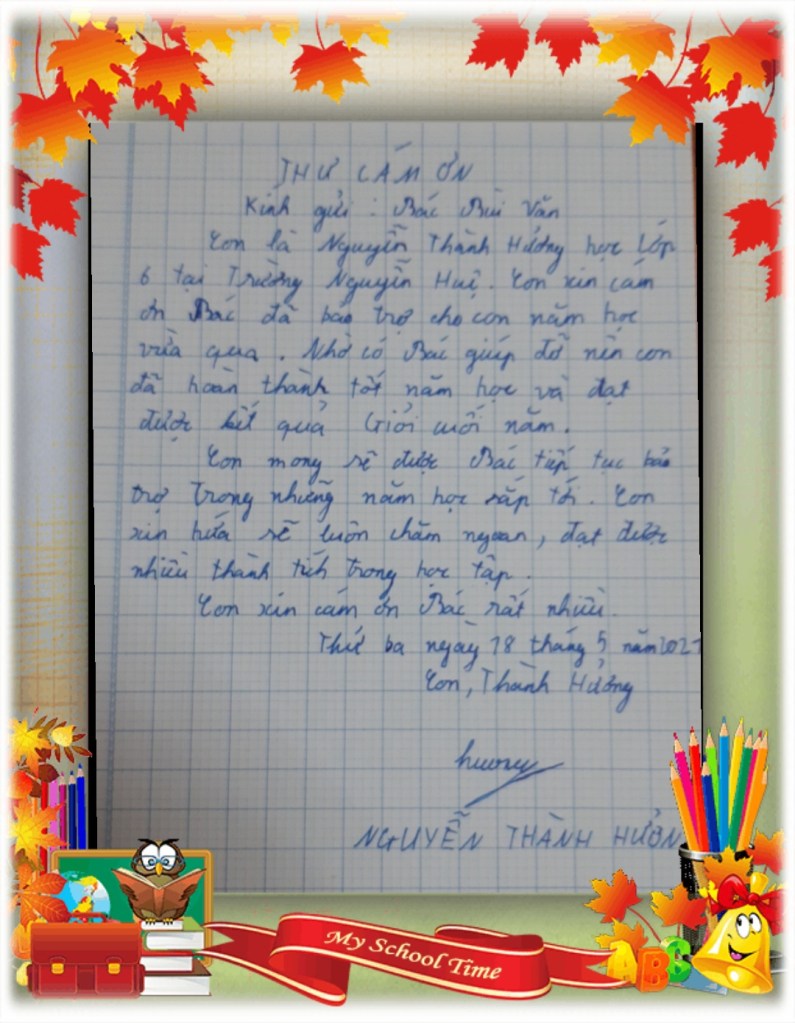 THƯ CÁM ƠN
Kính gửi : Bác Bùi Văn
Con là Nguyễn Thành Hưởng học Lớp
6 tại Trường Nguyễn Huệ. Con xin cám
ơn Bác đã bảo trợ cho con năm học
vừa qua. Nhờ có Bác giúp đỡ nên con
đã hoàn thành tốt năm học và đạt
được kết quả Giỏi cuối năm.
Con mong sẽ được Bác tiếp tục bảo
trợ Trong những năm học sắp tới. Con
xin hứa sẽ luôn chăm ngoan, đạt được
nhiều thành tích trong học tập.
Con xin cám ơn Bác rất nhiều.
Thứ ba ngày 18 tháng 5 năm 2021
Con, Thành Hưởng
hương
NGUYỄN THÀNH HƯỞN
My School Time
ABC